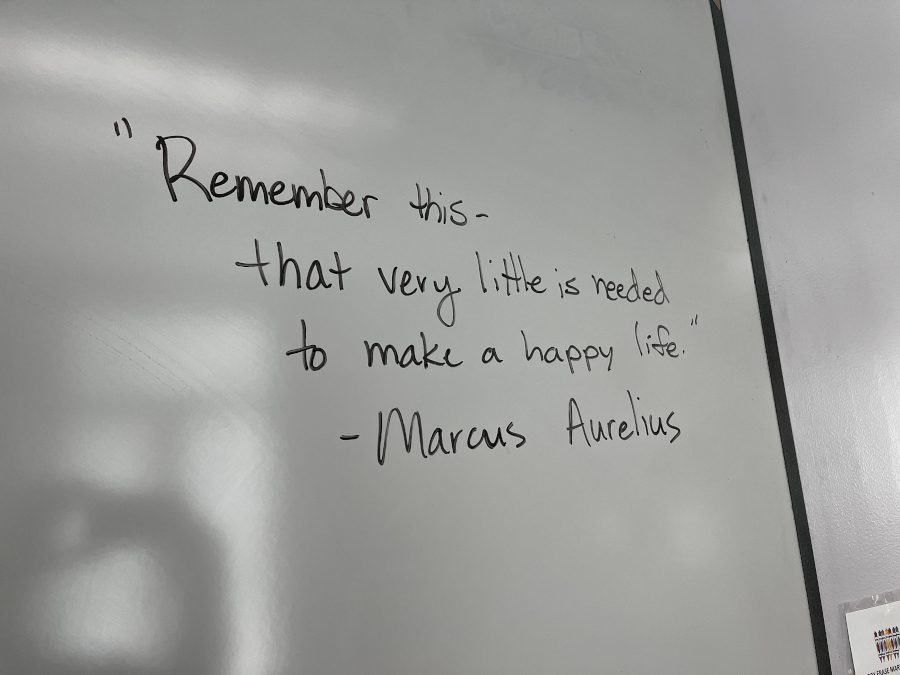 "Remember this-
that very little is needed
to make a happy life."
- Marcus Aurelius